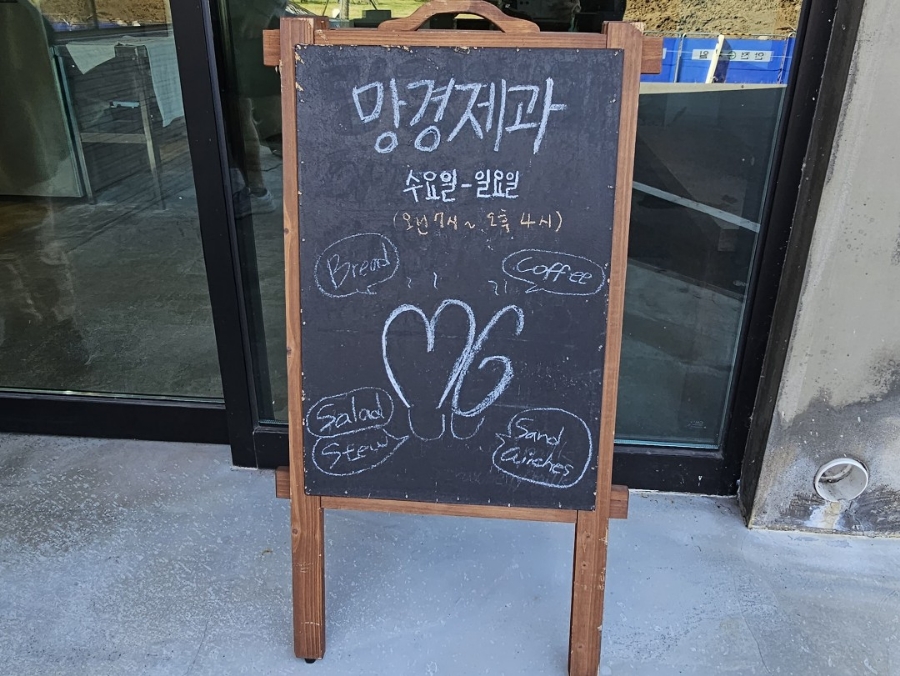 망경제과
수요일-일요일
(오전 7시~ 오후 4시)
Bread
Coffee
MG
Salad
Stew
Sand
wiches